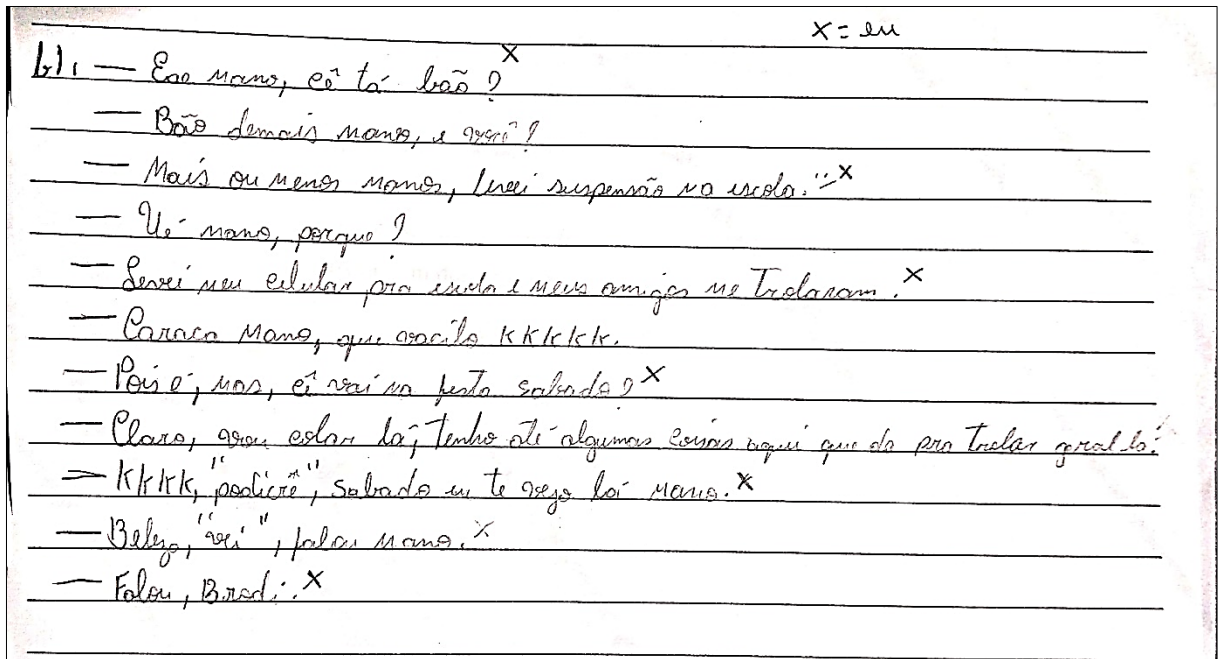 x = eu
b) — Eae mano, cê tá bão? x
— Bão demais mano, e você?
— Mais ou menos mano, levei suspensão na escola. x
— Ué mano, porque?
— Levei meu celular pra escola e meus amigos me trolaram. x
— Caraca mano, que vacilo kkkkk.
— Pois é, mas, cê vai na festa sabado? x
— Claro, vou colar lá, tenho até algumas coisas aqui que da pra trolar geral lá.
— KKKK, "podicrê", sabado eu te vejo lá mano. x
— Beleza, "vei", falou mano. x
— Falou, Brad. x